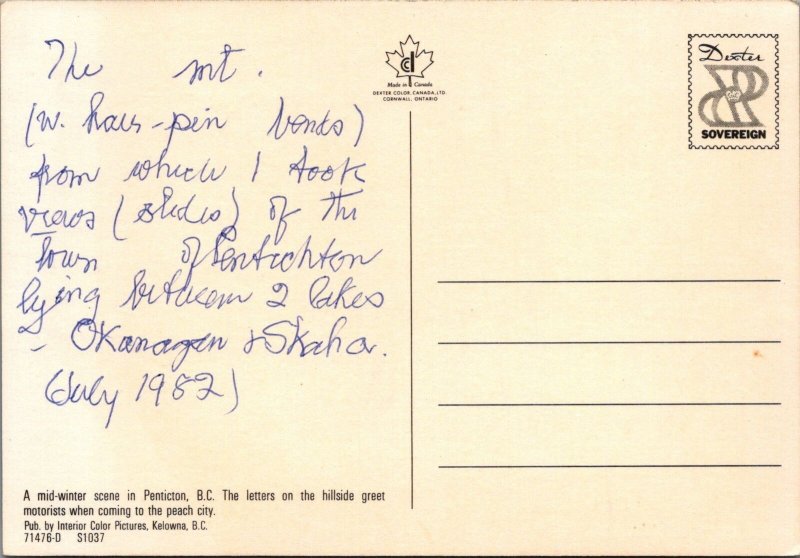 The mt.
(w. hair-pin bends)
from which I took
views (slides) of the
town of Pentichton
lying between 2 lakes
- Okanagan & Skaha.
(July 1982)
A mid-winter scene in Penticton, B.C. The letters on the hillside greet
motorists when coming to the peach city.
Pub. by Interior Color Pictures, Kelowna, B.C.
71476-D S1037
Made in Canada
DEXTER COLOR CANADA, LTD.
CORNWALL, ONTARIO
Dexter
SOVEREIGN